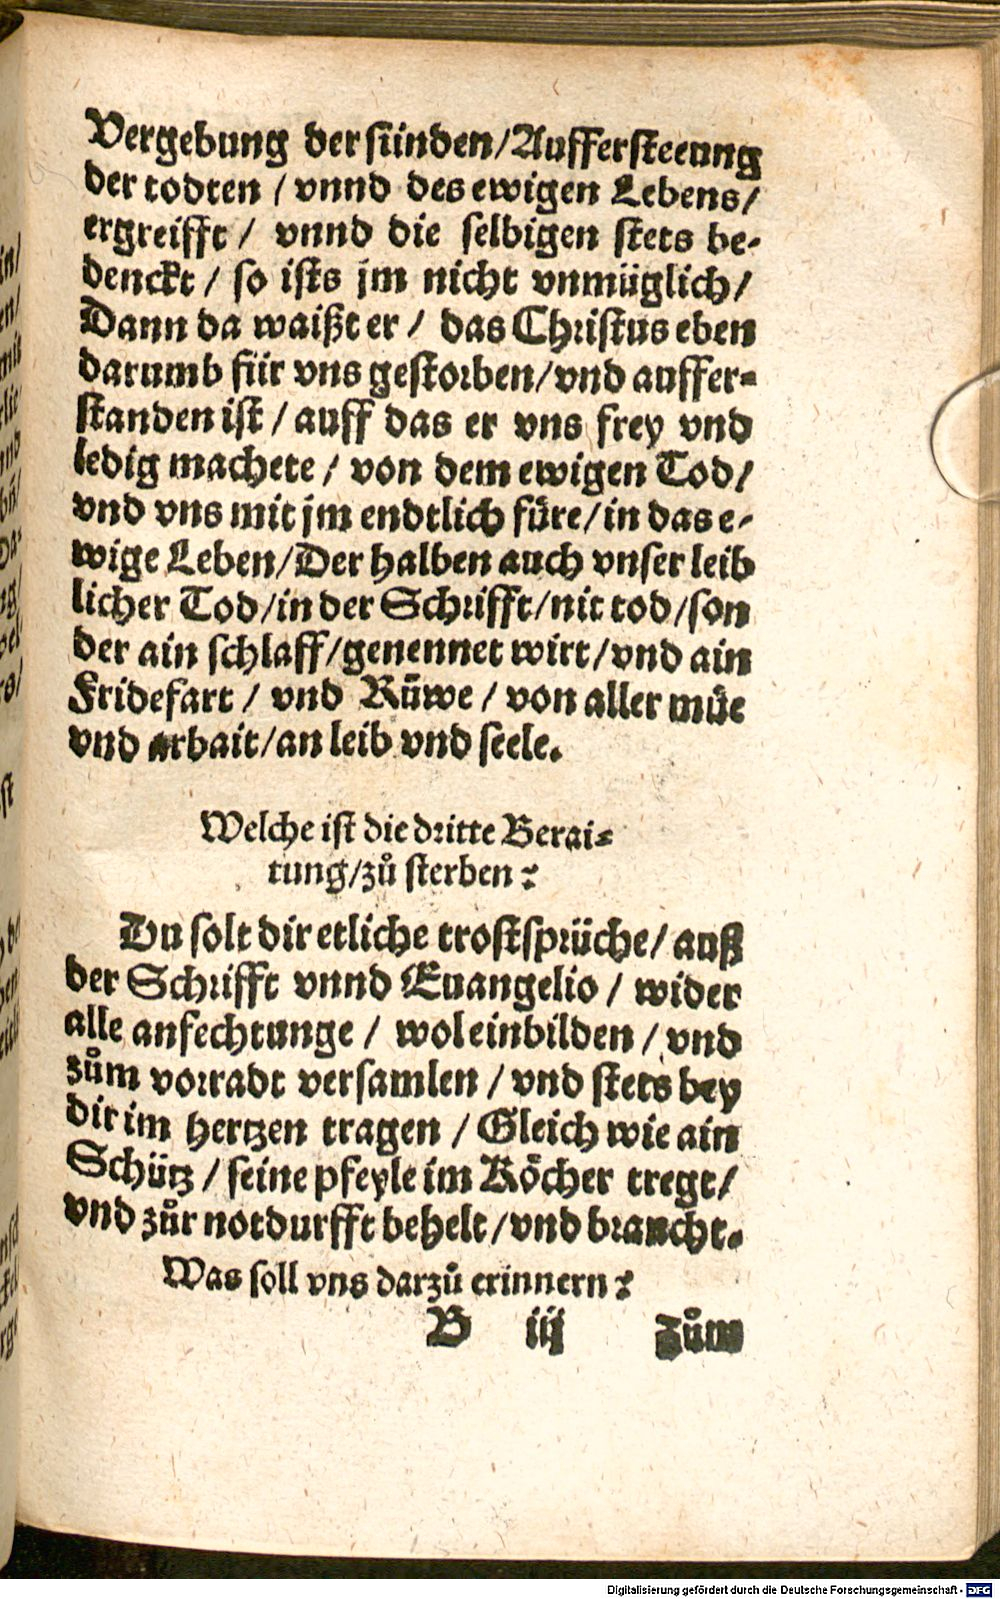 Vergebung der sünden/Auffersteeung
der todten / vnnd des ewigen Lebens/
ergreifft / vnnd die selbigen stets be-
denckt / so ists jm nicht vnmüglich/
Dann da waißt er / das Christus eben
darumb für vns gestorben/vnd auffer-
standen ist / auff das er vns frey vnd
ledig machete / von dem ewigen Tod/
vnd vns mit jm endtlich fůre/in das e-
wige Leben/Der halben auch vnser leib
licher Tod/in der Schrifft/nit tod/son
der ain schlaff/genennet wirt/vnd ain
Fridefart / vnd Růwe / von aller můe
vnd arbait/an leib vnd seele.
Welche ist die dritte Berai-
tung/zů sterben?
Du solt dir etliche trostsprüche/ auß
der Schrifft vnnd Euangelio / wider
alle anfechtunge / wol einbilden / vnd
zům vorradt versamlen / vnd stets bey
dir im hertzen tragen / Gleich wie ain
Schütz / seine pfeyle im Kôcher tregt/
vnd zůr notdurfft behelt/vnd braucht.
Was soll vns darzů erinnern?
B iij zům
Digitalisierung gefördert durch die Deutsche Forschungsgemeinschaft - DFG